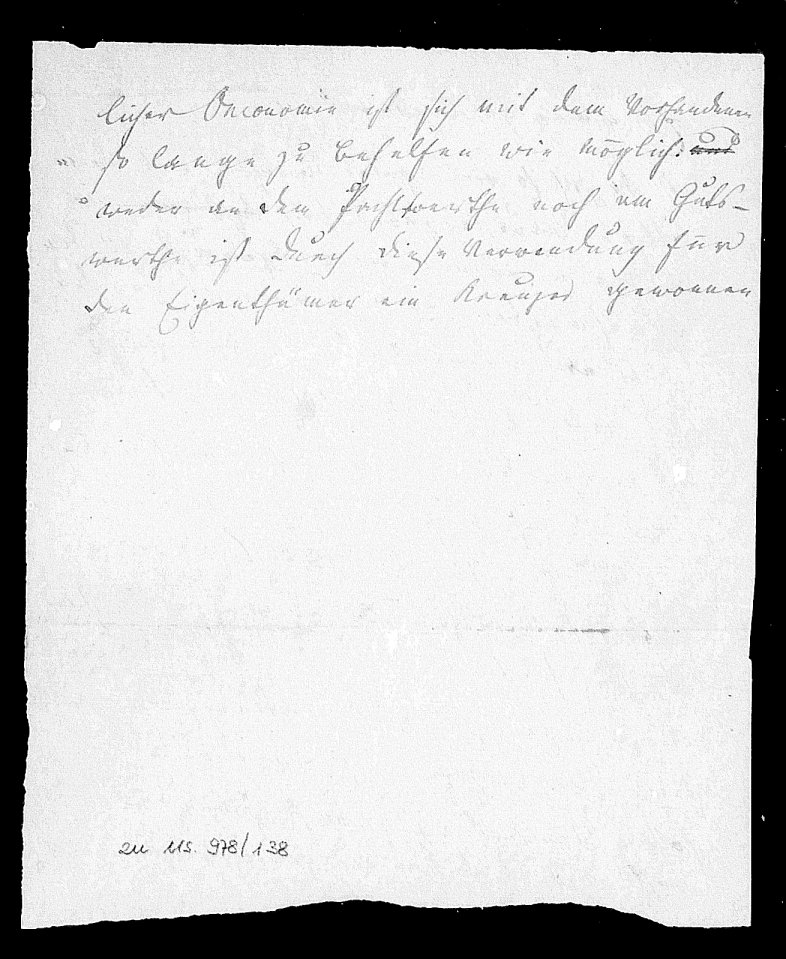 licher Oeconomie ist sich mit dem Vorhandenen
so lange zu behelfen wie möglich: und
weder an dem Pachtwerthe noch am Guts-
werthe ist durch diese Verwendung für
den Eigenthümer ein Kreuzer gewonnen
zu Ms. 978/138